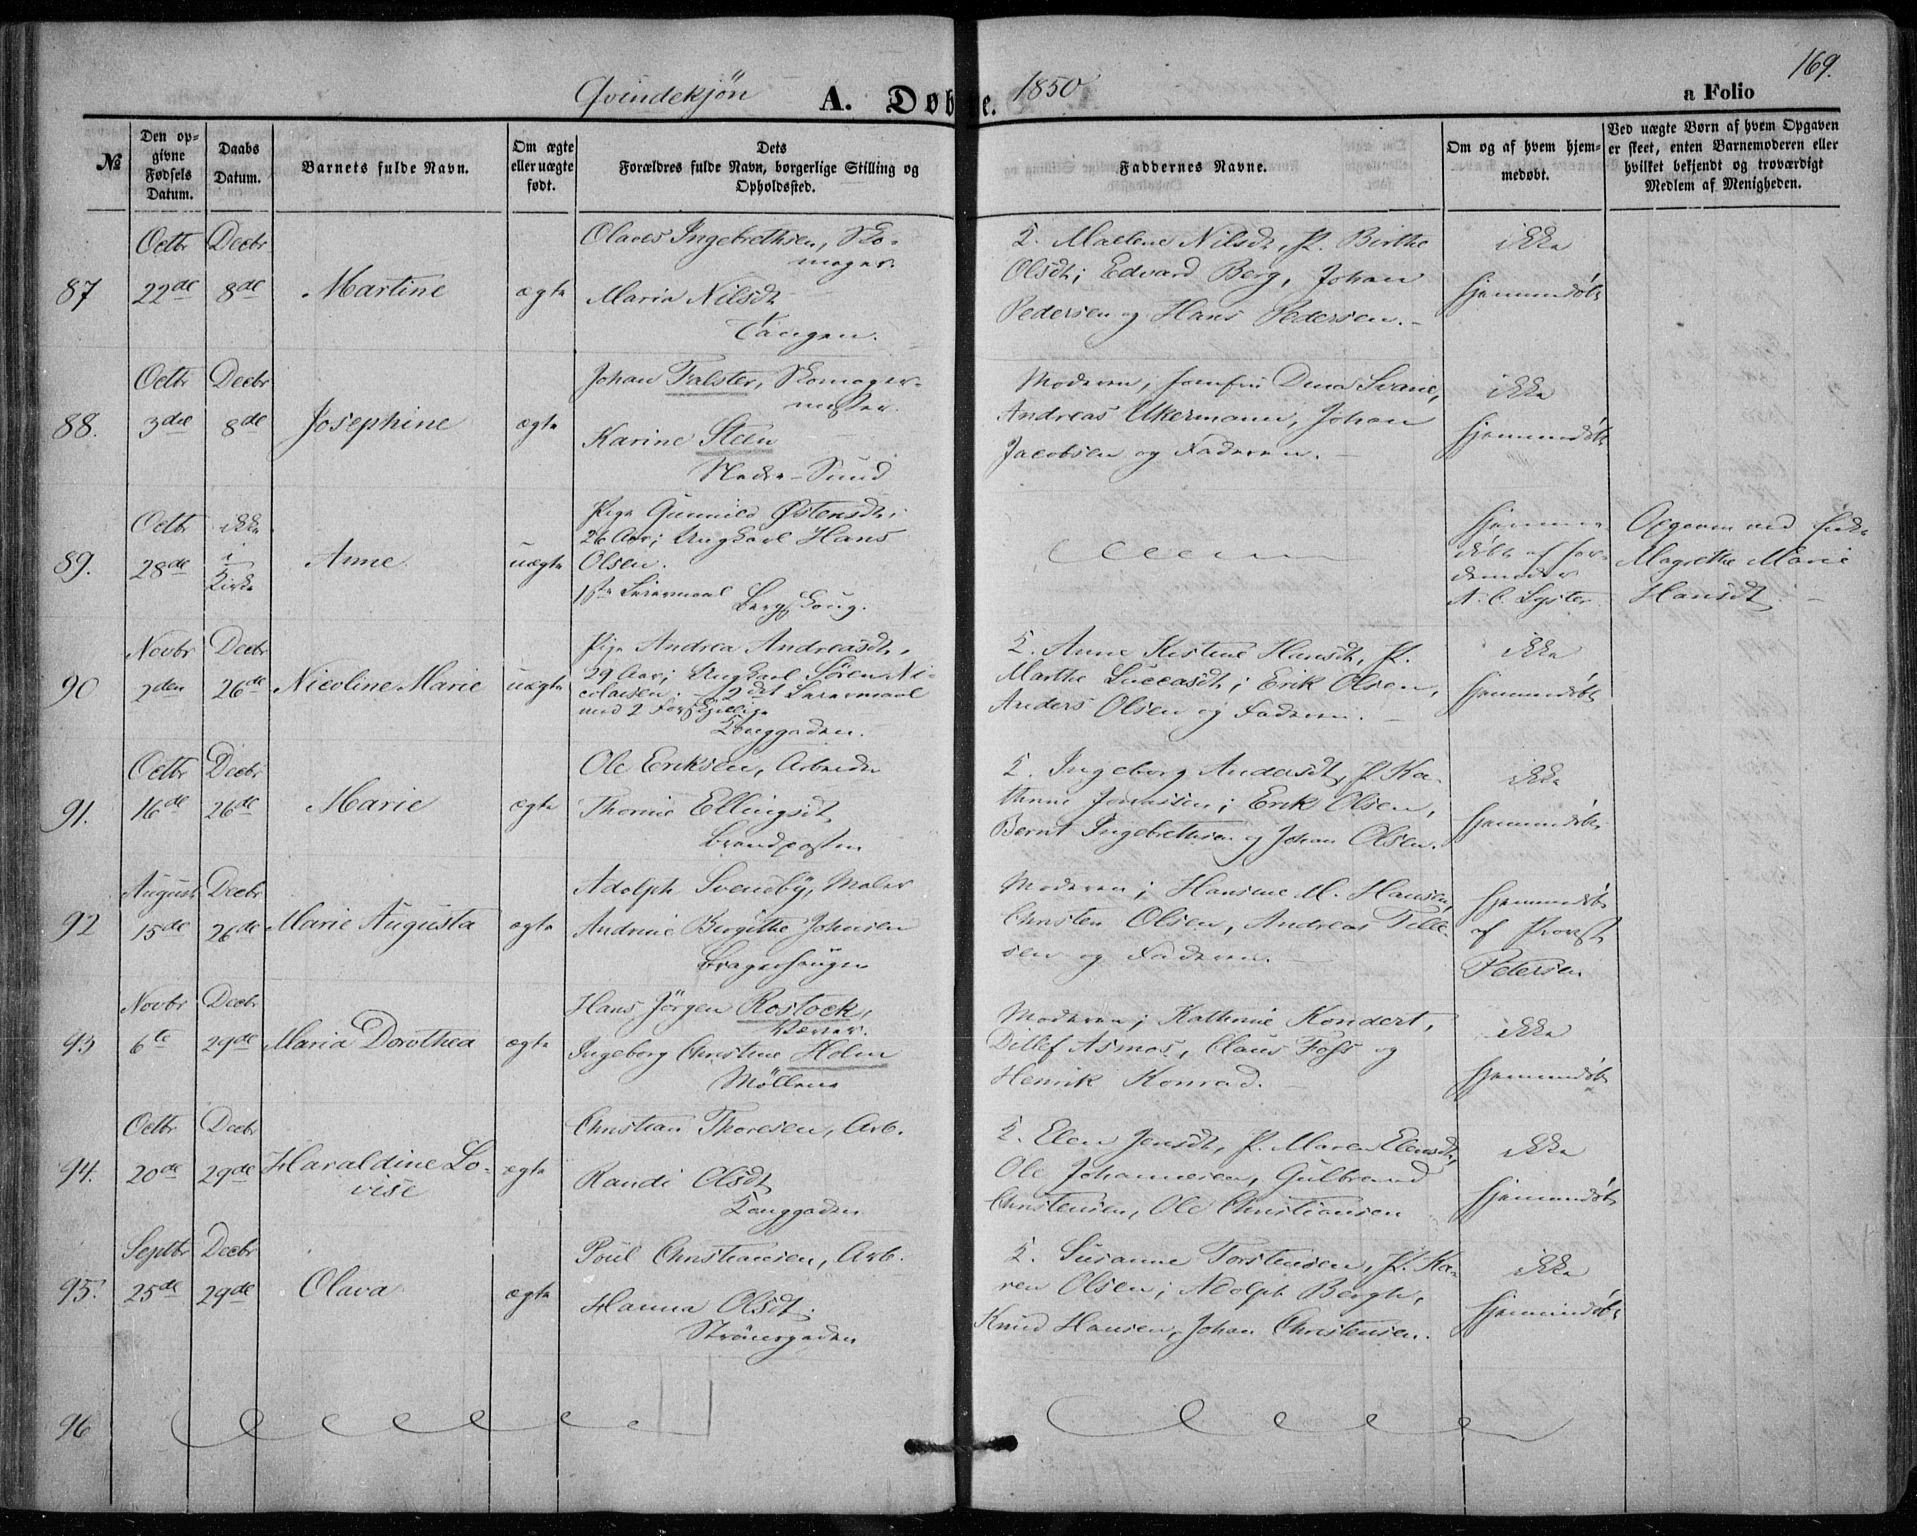 169.
Qvindekjön A. Døbte. 1850 a Folio
№
Den op-
givne
Fødsels
Datum.
Daabs
Datum.
Barnets fulde Navn.
Om ægte
eller uægte
født.
Dets
Forældres fulde Navn, borgerlige Stilling og
Opholdssted.
Faddernes Navne.
Om og af hvem hjem-
medøbt.
Ved uægte Børn af hvem Opgaven
er skeet, enten Barnemoderen eller
hvilket bekjendt og troværdigt
Medlem af Menigheden.
87 Octbr 22de Decbr 8de Martine ægte
Olaves Ingebrethsen, Sko-
mager
Maria Nilsdt
Tangen.
K. Malene Nilsdt, P. Birthe
Olsdt; Edvard Berg, Johan
Pedersen og Hans Pedersen.
ikke
hjemmedøbt
88. Octbr 3die Decbr 8de Josephine ægte
Johan Falster, Skomager-
mester.
Karine Steen
Nedre-Sund
Moderen, Jomfru Dina Svane,
Andreas Ukermann, Johan
Jacobsen og Faderen.
ikke
hjemmedøbt
89. Octbr 28de ikke
i
Kirke
Anne uægte
Pige Gunnild Østensdt,
26 Aar; Ungkarl Hans
Olsen.
1ste Leiermaal
Bergskoug.
hjemme-
døbt af Jor-
demoder
N. C. Lyster
Opgaven ved Enke
Magrethe Marie
Hansdt.
90 Novbr 2den Decbr 26de Nicoline Marie uægte
Pige Andrea Andreasdt,
29 Aar; Ungkarl Sören Ni-
colaisen. 2det Leiermaal
med 2 Forskjellige
Konggaden.
K. Anne Kistine Hansdt, P.
Marthe Luccasdt; Erik Olsen,
Anders Olsen og Faderen.
ikke
hjemmedøbt
91. Octbr 16de Decbr 26de Marie ægte
Ole Eriksen, Arbeider
Thorine Ellingsdt
Brandposten
K. Ingeborg Andersdt, P. Ka-
thrine Jonassen; Erik Olsen,
Bernt Ingebrethsen og Johan Olsen.
ikke
hjemmedøbt
92 August 15de Decbr 26de Marie Augusta ægte
Adolph Svendby, Maler
Andrine Birgithe Johnsen
Bragerhaugen
Moderen; Hansine M. Hansen,
Christen Olsen, Andreas Tille-
sen og Faderen.
hjemmedøbt
af Provst
Petersen
93 Novbr 6te Decbr 29de Maria Dorothea ægte
Hans Jörgen Rostock,
Væver.
Ingeborg Christine Holm
Möllens
Moderen; Kathrine Kondert,
Ditlef Asmos, Claus Foss og
Henrik Konrad.
ikke
hjemmedøbt
94. Octbr 20de Decbr 29de Haraldine Lo-
vise
ægte
Christian Thoresen, Arb.
Randi Olsdt
Konggaden
K. Elen Jensdt, P. Maren Elensdt,
Ole Johannesen, Gulbrand
Christensen, Ole Christiansen
ikke
hjemmedøbt
95. Septbr 25de Decbr 29de Olava ægte
Poul Christiansen, Arb.
Hanna Olsdt.
Strömsgaden
K. Susanne Torstensen, P. Ka-
ren Olsen; Adolph Bergh,
Knud Hansen, Johan Christensen.
ikke
hjemmedøbt
96